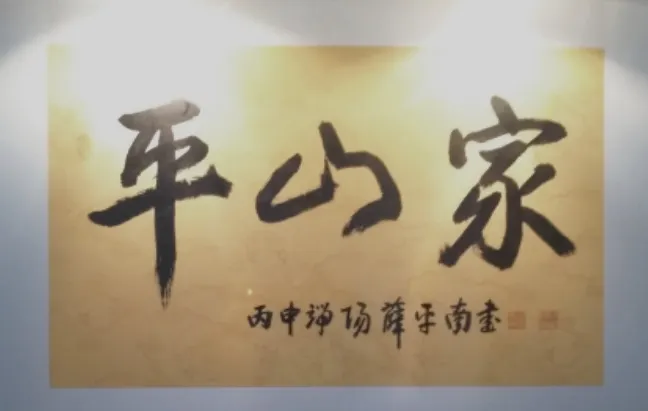 平山家
丙申端陽薛平南書